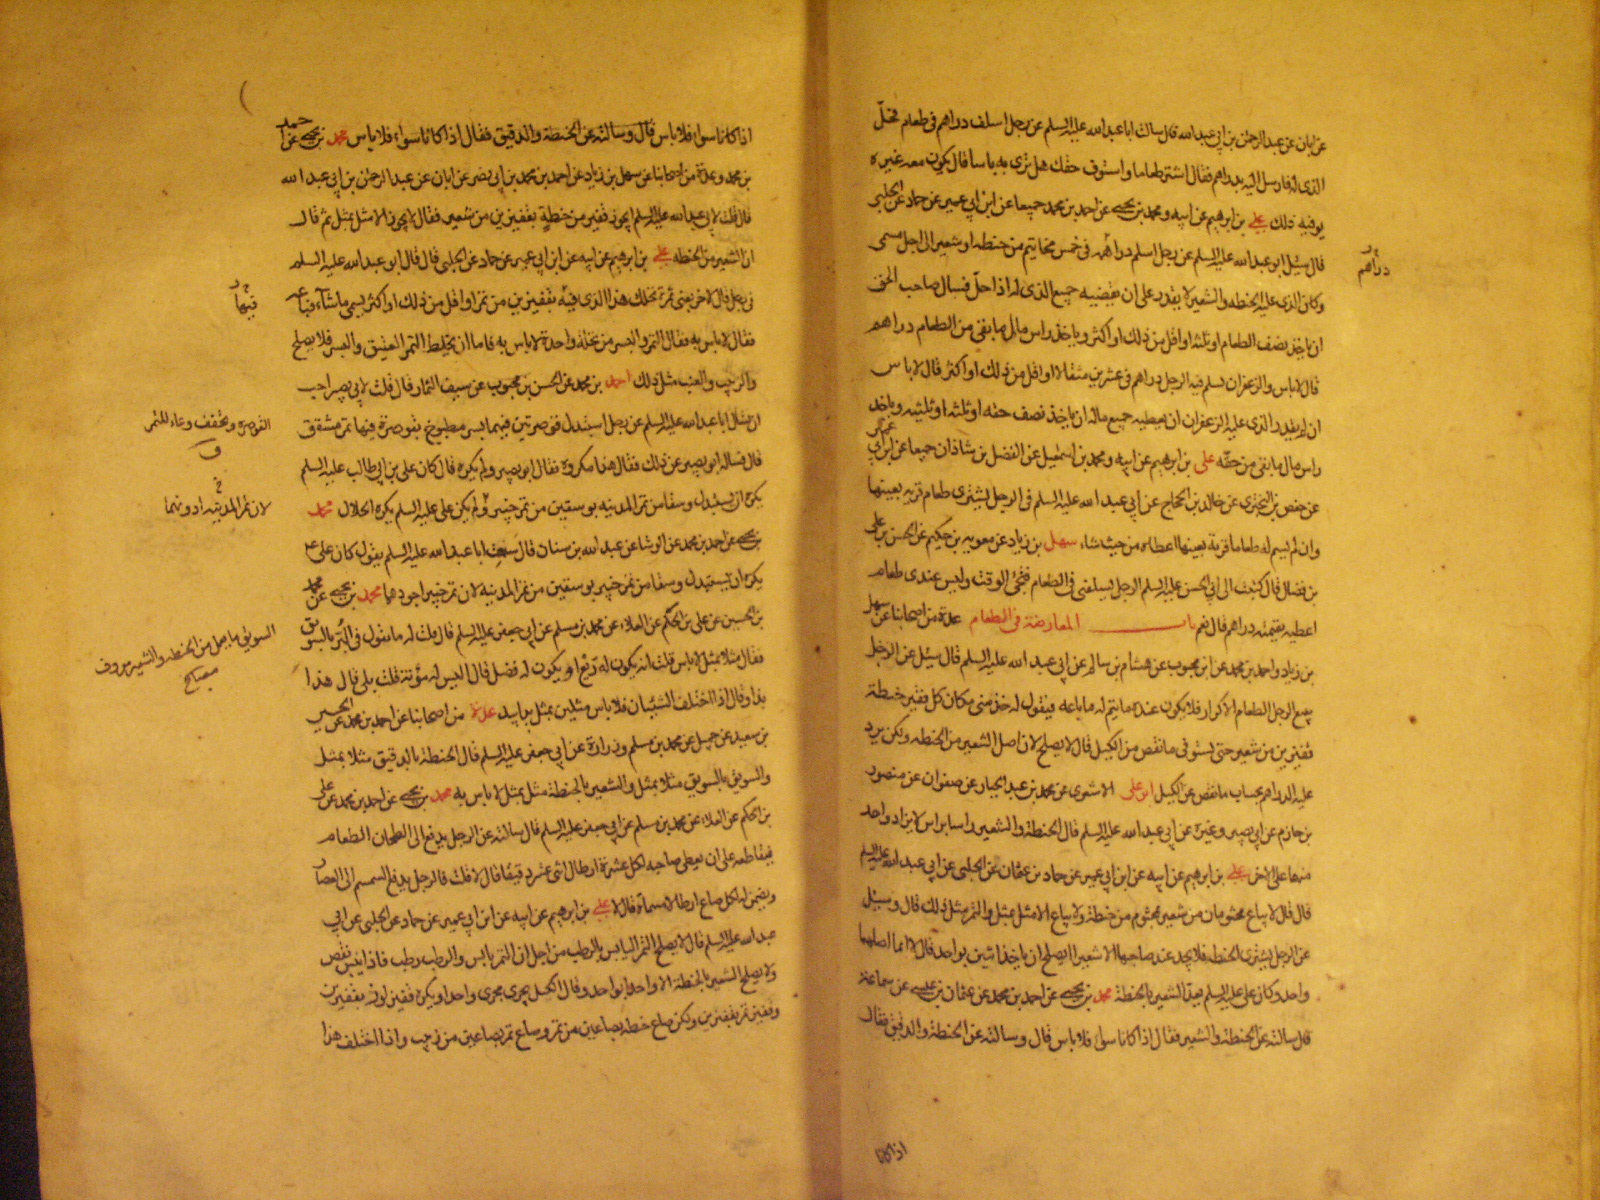 عن ابان عن عبد الرحمن بن ابي عبد الله قال سالت ابا عبد الله عليه السلم عن رجل اسلف دراهم في طعام فحلّ
الذى له فارسل اليه بدراهم فقال اشتر طعاما واستوف حقك هل ترى به باسا قال يكون معه غيره
يوفيه ذلك علي بن ابرهيم عن ابيه و محمد بن يحيى عن احمد بن محمد جميعا عن ابن ابي عمير عن حماد عن الحلبي
قال سئل ابو عبد الله عليه السلم عن رجل اسلم دراهمه في خمس مخاتيم من حنطه او شعير الى اجل مسمى
دراهم
وكان الذى عليه الحنطه والشعير لا يقدر على ان يقضيه جميع الذى له اذا حلّ فسال صاحب الحق
ان ياخذ نصف الطعام او ثلثه او اقل من ذلك او اكثر و ياخذ راس مال ما بقى من الطعام دراهم
قال لا باس والزعفران يسلم فيه الرجل دراهم في عشرين مثقالا او اقل من ذلك او اكثر قال لا باس
ان لم يقدر الذى عليه الزعفران ان يعطيه جميع ماله ان ياخذ نصف حقه او ثلثه او ثلثيه و ياخذ
راس مال ما بقى من حقه علي بن ابرهيم عن ابيه و محمد بن اسمعيل عن الفضل بن شاذان جميعا عن ابن ابي عمير
عن حفص بن البخترى عن خالد بن الحجاج عن ابي عبد الله عليه السلم في الرجل يشترى طعام قريه بعينها
وان لم يسم له طعام قرية بعينها اعطاه من حيث شاء سهل بن زياد عن معويه بن حكيم عن الحسن بن على
بن فضال قال كتبت الى ابي الحسن عليه السلم الرجل يسلفنى في الطعام فيجئ الوقت وليس عندى طعام
اعطيه بقيمته دراهم قال نعم باب المعاوضة في الطعام عدة من اصحابنا عن سهل
بن زياد و احمد بن محمد عن ابن محبوب عن هشام بن سالم عن ابي عبد الله عليه السلم قال سئل عن الرجل
يبيع الرجل الطعام الاكرار فلا يكون عنده ما يتم له ما باعه فيقول له خذ منى مكان كل قفيز حنطة
قفيزين من شعير حتى تستوفى ما نقص من الكيل قال لا يصلح لان اصل الشعير من الحنطه ولكن يرد
عليه الدراهم بحساب ما نقص من الكيل ابو على الاشعرى عن محمد بن عبد الجبار عن صفوان عن منصور
بن حازم عن ابي بصير و غيره عن ابي عبد الله عليه السلم قال الحنطة والشعير راسا براس لا يزاد واحد
منهما على الاخر علي بن ابرهيم عن ابيه عن ابن ابي عمير عن حماد بن عثمان عن الحلبى عن ابي عبد الله عليه السلم
قال قال لا يباع مختومان من شعير بمختوم من حنطة ولا يباع الا مثل بمثل والتمر مثل ذلك قال و سئل
عن الرجل يشترى الحنطه فلا يجد عند صاحبها الا شعيرا ايصلح ان ياخذ اثنين بواحد قال لا انما اصلهما
واحد و كان على عليه السلم يعد الشعير بالحنطة محمد بن يحيى عن احمد بن محمد عن عثمان بن عيسى عن سماعة
قال سالته عن الحنطة والشعير فقال اذا كانا سواء فلا باس قال و سالته عن الحنطة والدقيق فقال
اذا كانا
اذا كانا سواء فلا باس قال و سالته عن الحنطة والدقيق فقال اذا كانا سواء فلا باس محمد بن يحيى عن احمد
بن محمد و عدة من اصحابنا عن سهل بن زياد عن احمد بن محمد بن ابي نصر عن ابان عن عبد الرحمن بن ابي عبد الله
قال قلت لابي عبد الله عليه السلم ايجوز قفيز من حنطة بقفيزين من شعير فقال لا يجوز الا مثل بمثل ثم قال
ان الشعير من الحنطه علي بن ابرهيم عن ابيه عن ابن ابي عمير عن حماد عن الحلبى قال قال ابو عبد الله عليه السلم
في رجل قال لاخر بعنى ثمرة نخلك هذا الذى فيه بقفيزين من تمر او اقل من ذلك او اكثر يسمى ما شاء فباعه
فيها
فقال لا باس به فقال التمر والبسر من نخلة واحدة لا باس به فاما ان يخلط التمر العتيق والبسر فلا يصلح
والزبيب والعنب مثل ذلك احمد بن محمد عن الحسن بن محبوب عن سيف التمار قال قلت لابي بصير احب
ان تسال ابا عبد الله عليه السلم عن رجل استبدل قوصرتين فيهما بسر مطبوخ بقوصرة فيها تمر مشقق
القوصرة و تخفف وعاء للتمر
ق
قال فساله ابو بصير عن ذلك فقال هذا مكروه فقال ابو بصير ولم يكره قال كان على بن ابي طالب عليه السلم
يكره ان يستبدل وسقا من تمر المدينه بوسقين من تمر خيبر ولم يكن على عليه السلم يكره الحلال محمد
لان تمر المدينه ادونهما
بن يحيى عن احمد بن محمد عن الوشا عن عبد الله بن سنان قال سمعت ابا عبد الله عليه السلم يقول كان على ع
يكره ان يستبدل وسقا من تمر خيبر بوسقين من تمر المدينه لان تمر خيبر اجودهما محمد بن يحيى عن محمد
بن الحسين عن على بن الحكم عن العلاء عن محمد بن مسلم عن ابي جعفر عليه السلم قال قلت له ما تقول في البُر بالسويق
السويق ما يعمل من الحنطه والشعير معروف
مصباح
فقال مثلا بمثل لا باس قلت انه يكون له ريع او يكون له فضل قال اليس له مؤنة قلت بلى قال هذا
بذا و قال اذا اختلف الشيئان فلا باس مثلين بمثل يدا بيد عدة من اصحابنا عن احمد بن محمد عن الحسين
بن سعيد عن جميل عن محمد بن مسلم و زرارة عن ابي جعفر عليه السلم قال الحنطة بالدقيق مثلا بمثل
والسويق بالسويق مثلا بمثل والشعير بالحنطة مثل بمثل لا باس به محمد بن يحيى عن احمد بن محمد عن على
بن الحكم عن العلاء عن محمد بن مسلم عن ابي جعفر عليه السلم قال سالته عن الرجل يدفع الى الطحان الطعام
فيقاطعه على ان يعطى صاحبه لكل عشرة ارطال اثنى عشر دقيقا قال لا قلت فالرجل يدفع السمسم الى العصار
و يضمن له لكل صاع ارطالا مسماة قال لا علي بن ابرهيم عن ابيه عن ابن ابي عمير عن حماد عن الحلبى عن ابي
عبد الله عليه السلم قال لا يصلح التمر اليابس بالرطب من اجل ان التمر يابس والرطب رطب فاذا يبس نقص
ولا يصلح الشعير بالحنطة الا واحدا بواحد و قال الكيل يجرى مجرى واحدا و يكره قفيز لوز بقفيزين
و قفيز تمر بقفيزين ولكن صاع حنطه بصاعين من تمر و صاع تمر بصاعين من زبيب و اذا اختلف هذا